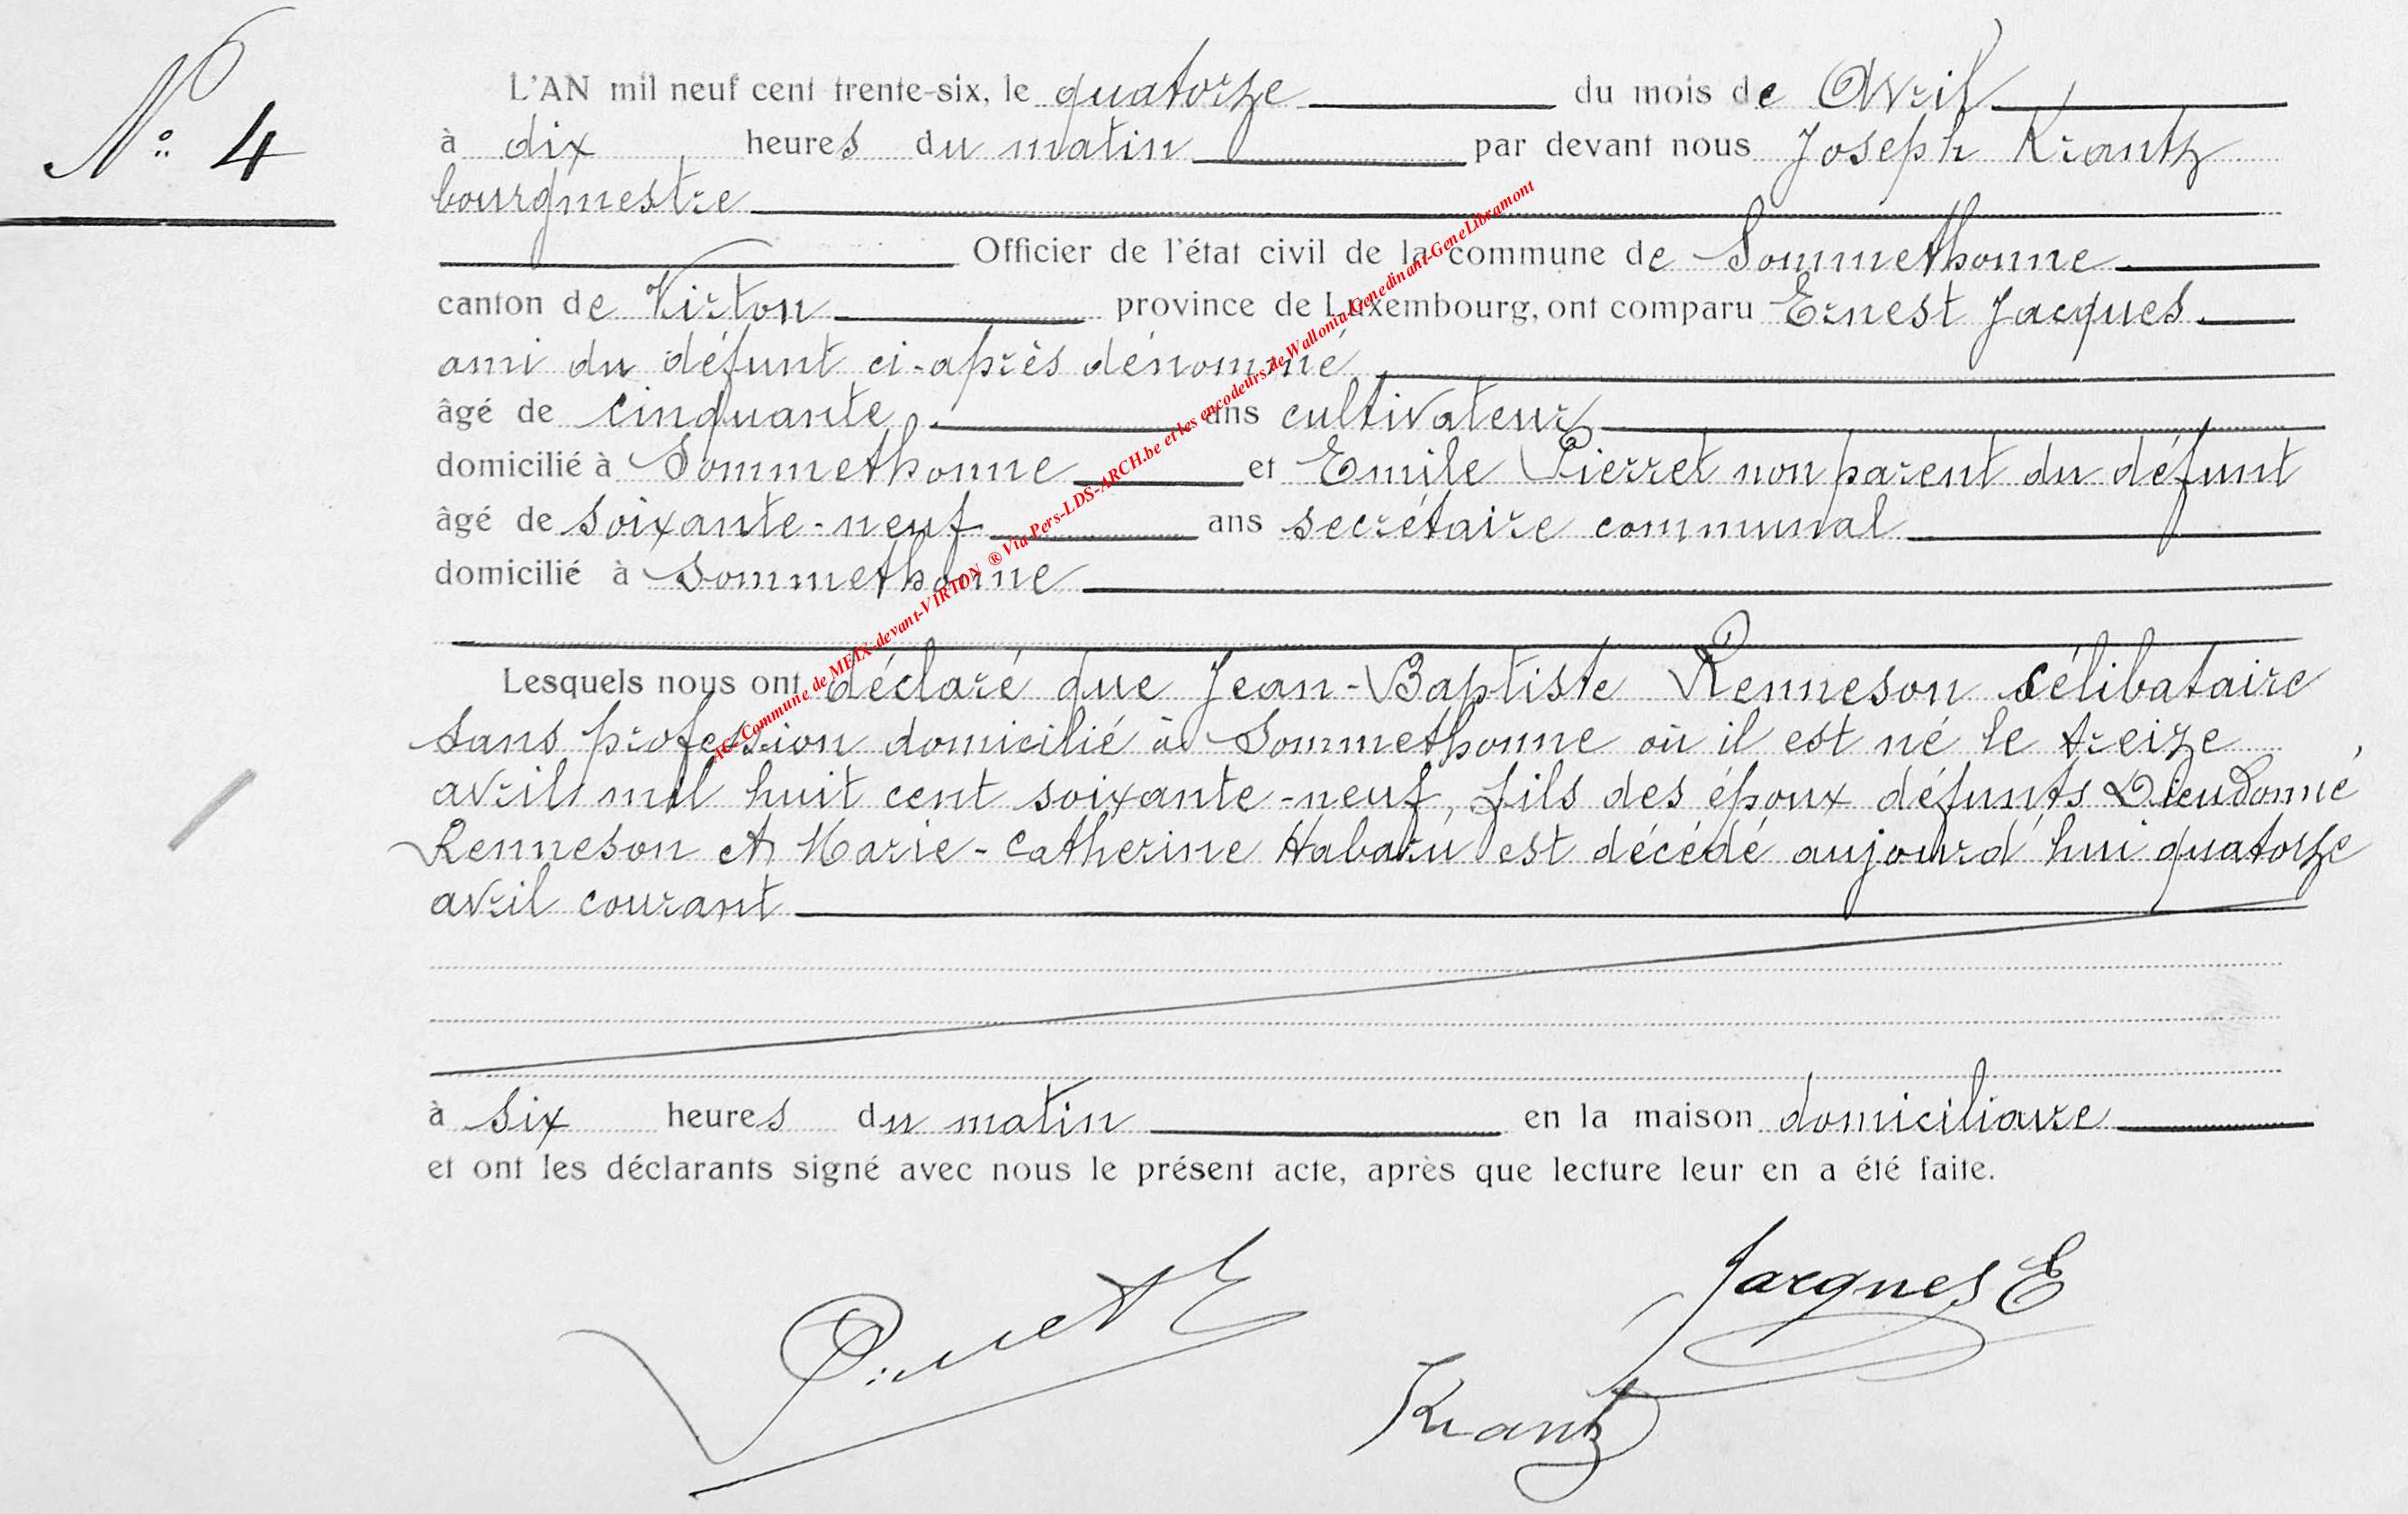 N° 4
L'AN mil neuf cent trente-six, le quatorze du mois de Avril
à dix heures du matin par devant nous Joseph Krantz
bourgmestre
Officier de l'état civil de la commune de Sommethonne
canton de Virton province de Luxembourg, ont comparu Ernest Jacques
ami du défunt ci-après dénommé
âgé de cinquante ans cultivateur
domicilié à Sommethonne et Emile Pierret non parent du défunt
âgé de soixante-neuf ans secrétaire communal
domicilié à Sommethonne
Lesquels nous ont déclaré que Jean-Baptiste Renneson célibataire
sans profession domicilié à Sommethonne où il est né le treize
avril mil huit cent soixante-neuf, fils des époux défunts Dieudonné
Renneson et Marie-Catherine Habaru est décédé aujourd'hui quatorze
avril courant
à six heures du matin en la maison domiciliaire
et ont les déclarants signé avec nous le présent acte, après que lecture leur en a été faite.
Jacques E
Pierret E
Krantz
AC-Commune de MEIX-devant-VIRTON ® Via Pers-LDS-ARCH.be et les encodeurs de Wallonia-Genedinant-GeneLibramont